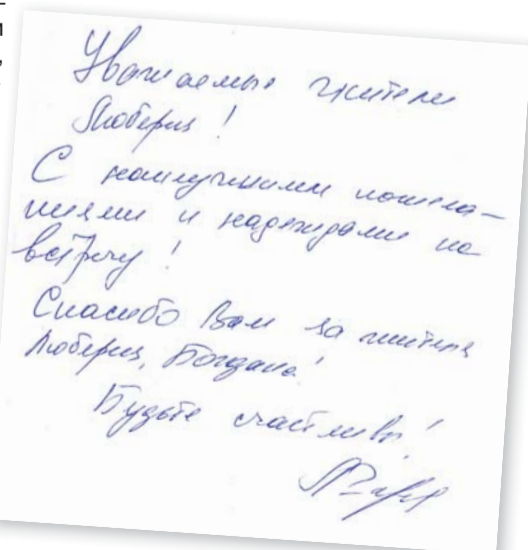 Уважаемые жители
Люберец!
С наилучшими пожела-
ниями и надеждами на
встречу!
Спасибо Вам за жителя
Люберец, Богдана!
Будьте счастливы!